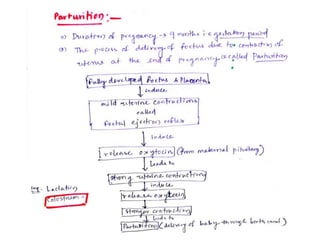 Parturition :-
1) Duration of pregnancy → 9 months i.e gestation period
2) The process of delivery of foetus due to contraction of
uterus at the end of pregnancy is called Parturition
Fully developed foetus & Placenta
induce
mild uterine contractions
called
foetal ejection reflex
induce
release oxytocin (from maternal pituitary)
leads to
strong uterine contraction
induce
Lactation
release oxytocin
Colostrum
stronger contraction
leads to
Parturition (delivery of baby through birth canal)